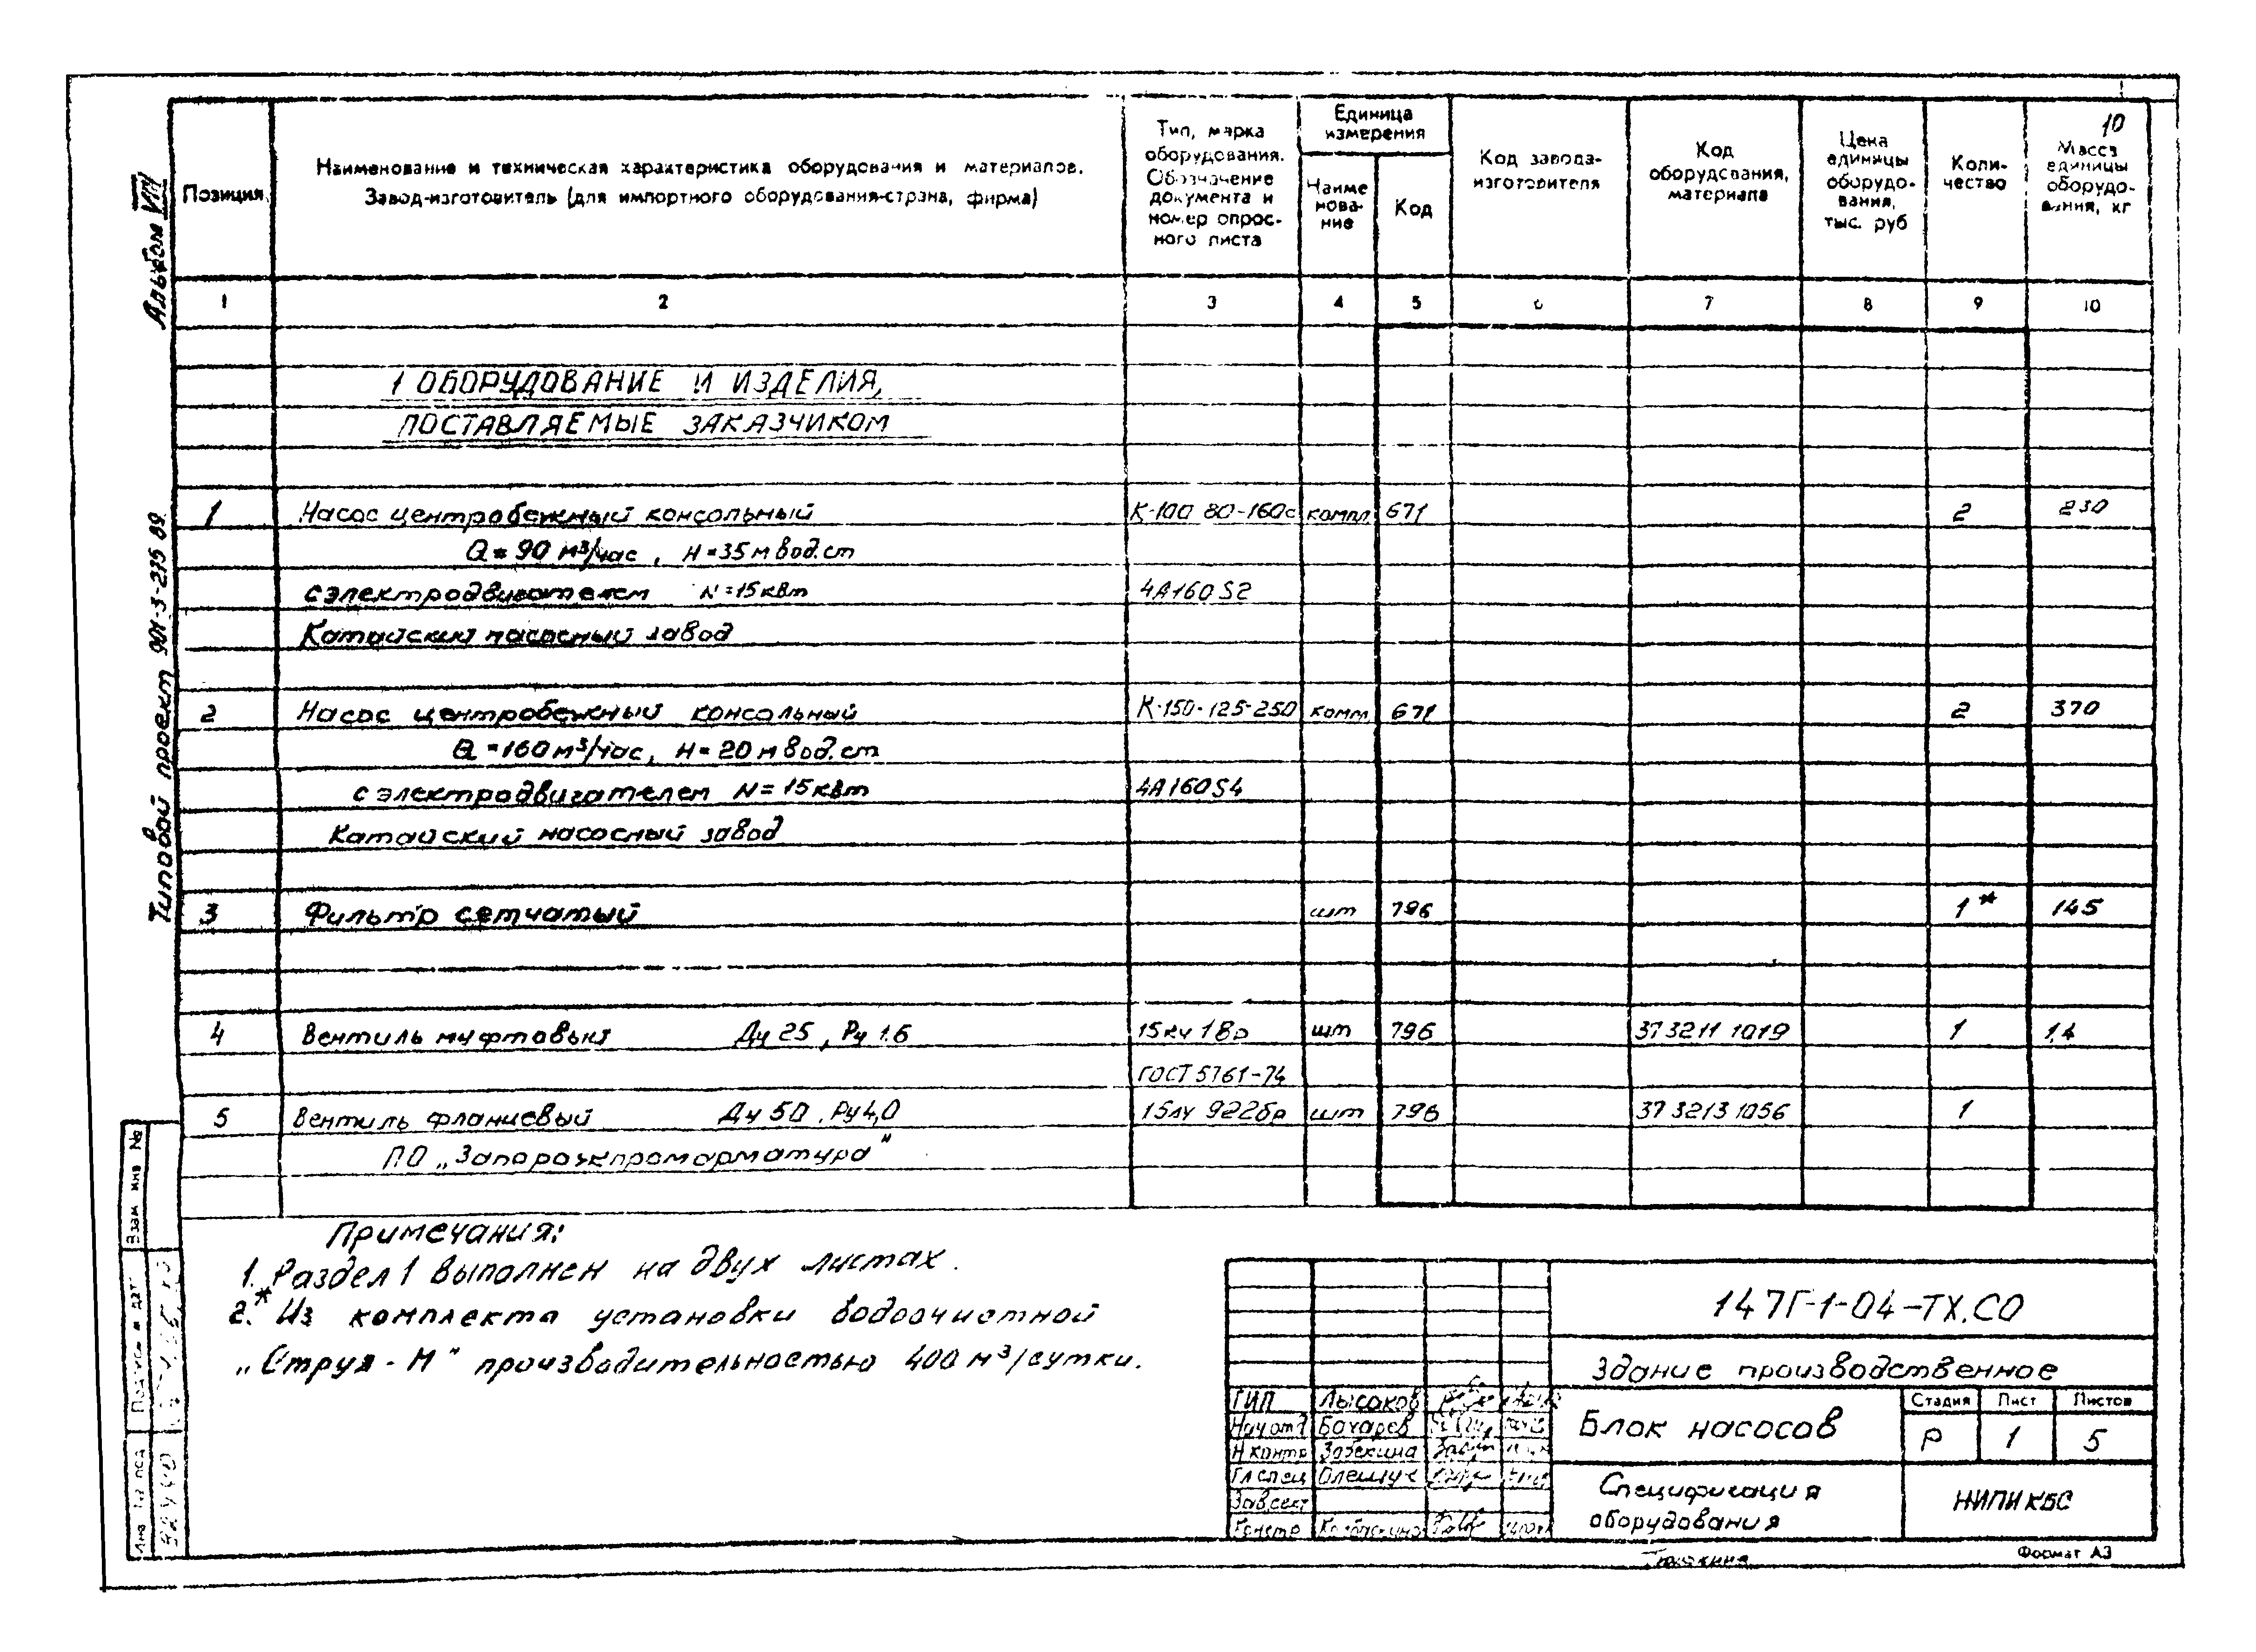 10
Позиция
Наименование и техническая характеристика оборудования и материалов.
Завод-изготовитель (для импортного оборудования-страна, фирма)
Тип, марка
оборудования.
Обозначение
документа и
номер опрос-
ного листа
Единица
измерения
Наиме
нова-
ние
Код
Код завода-
изготовителя
Код
оборудования,
материала
Цена
единицы
оборудо-
вания,
тыс. руб
Коли-
чество
Масса
единицы
оборудо-
вания, кг
1 2 3 4 5 6 7 8 9 10
1 ОБОРУДОВАНИЕ И ИЗДЕЛИЯ,
ПОСТАВЛЯЕМЫЕ ЗАКАЗЧИКОМ
1 Насос центробежный консольный К-100 80-160с компл 671 2 230
Q = 90 м³/час, H = 35 м вод.ст
с электродвигателем N = 15 кВт 4А160S2
Катайский насосный завод
2 Насос центробежный консольный К-150-125-250 компл 671 2 370
Q = 160 м³/час, H = 20 м вод.ст
с электродвигателем N = 15 кВт 4А160S4
Катайский насосный завод
3 Фильтр сетчатый шт 796 1* 145
4 Вентиль муфтовый Ду 25, Ру 1.6 15кч 18р шт 796 37 3211 1019 1 1,4
ГОСТ 5761-74
5 Вентиль фланцевый Ду 50, Ру 4,0 15лч 922бр шт 796 37 3213 1056 1
ПО „Запорожпромарматура"
Примечания:
1. Раздел 1 выполнен на двух листах.
2.* Из комплекта установки водоочистной
„Струя - М" производительностью 400 м³/сутки.
147Г-1-04-ТХ.СО
Здание производственное
Блок насосов
Стадия Лист Листов
Р 1 5
Спецификация
оборудования
НИПИКБС
ГИП Лысаков
Нач отд Бочарев
Н контр Забекина
Гл спец Олещук
Зав сект
Констр
Формат А3
Альбом VIII
Типовой проект 901-3-275 89
Взам инв №
Подпись и дата
Инв № под